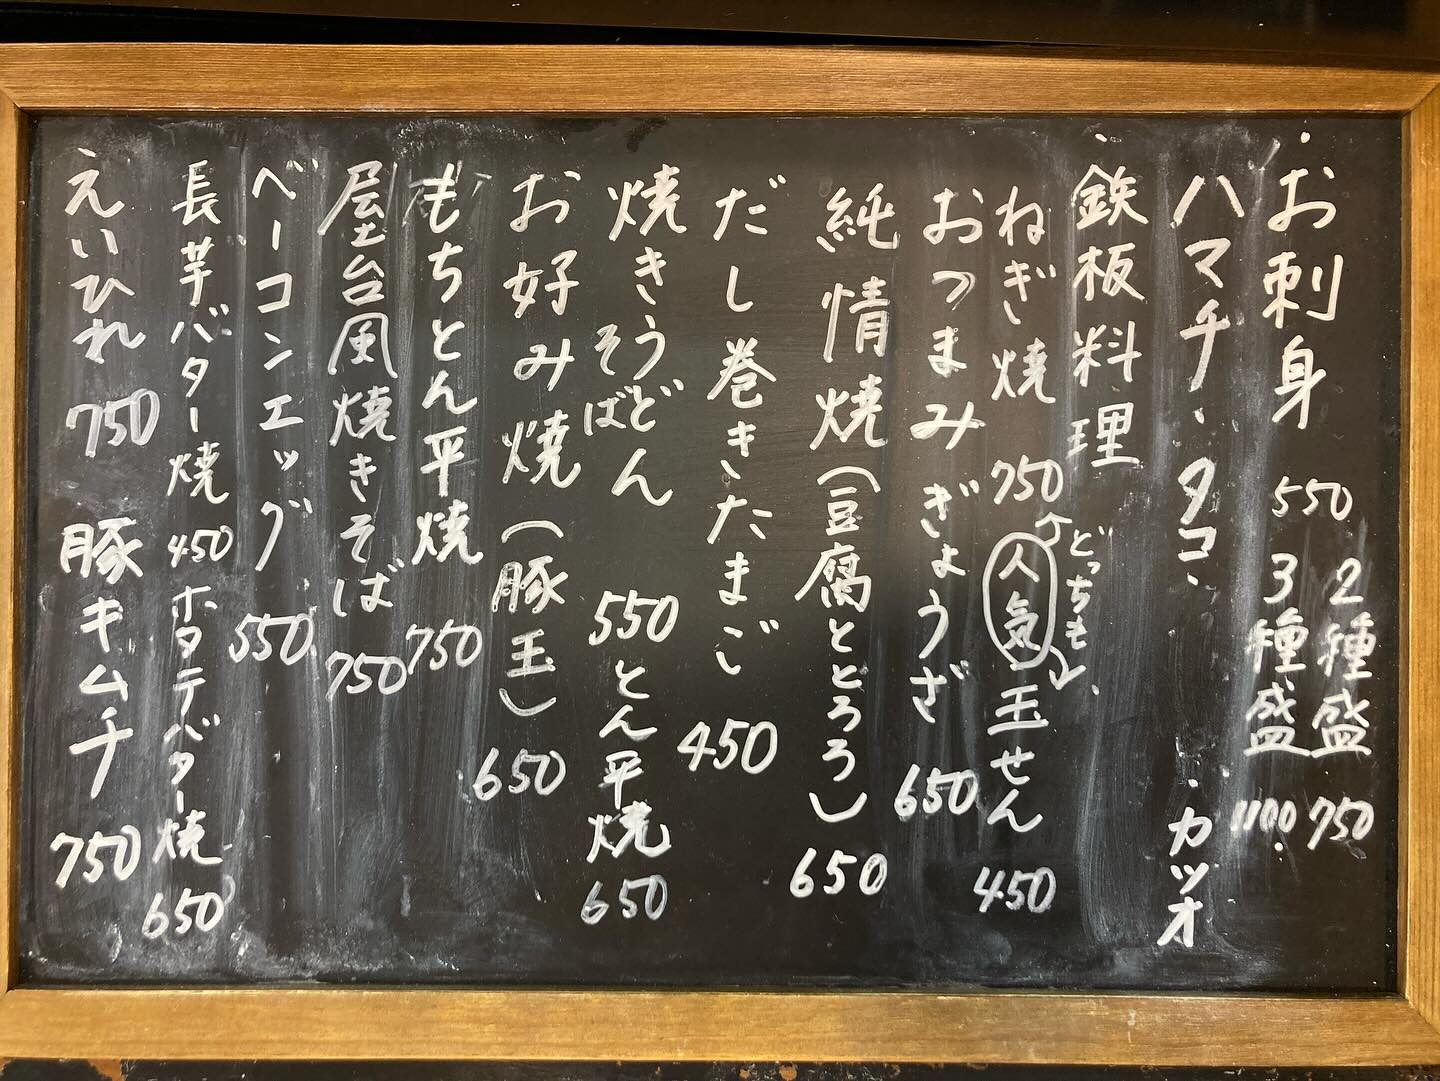 ・お刺身 550 2種盛 750
3種盛 1100.
ハマチ・タコ・ ・カツオ
・鉄板料理 どっちも
ねぎ焼 750 人気 玉せん 450
おつまみぎょうざ 650
純情焼(豆腐ととろろ) 650
だし巻きたまご 450
焼きうどん
そば 550 とん平焼 650
お好み焼(豚玉) 650
もちとん平焼 750
屋台風焼きそば 750
ベーコンエッグ 550
長芋バター焼 450 ホタテバター焼 650
えいひれ 750 豚キムチ 750